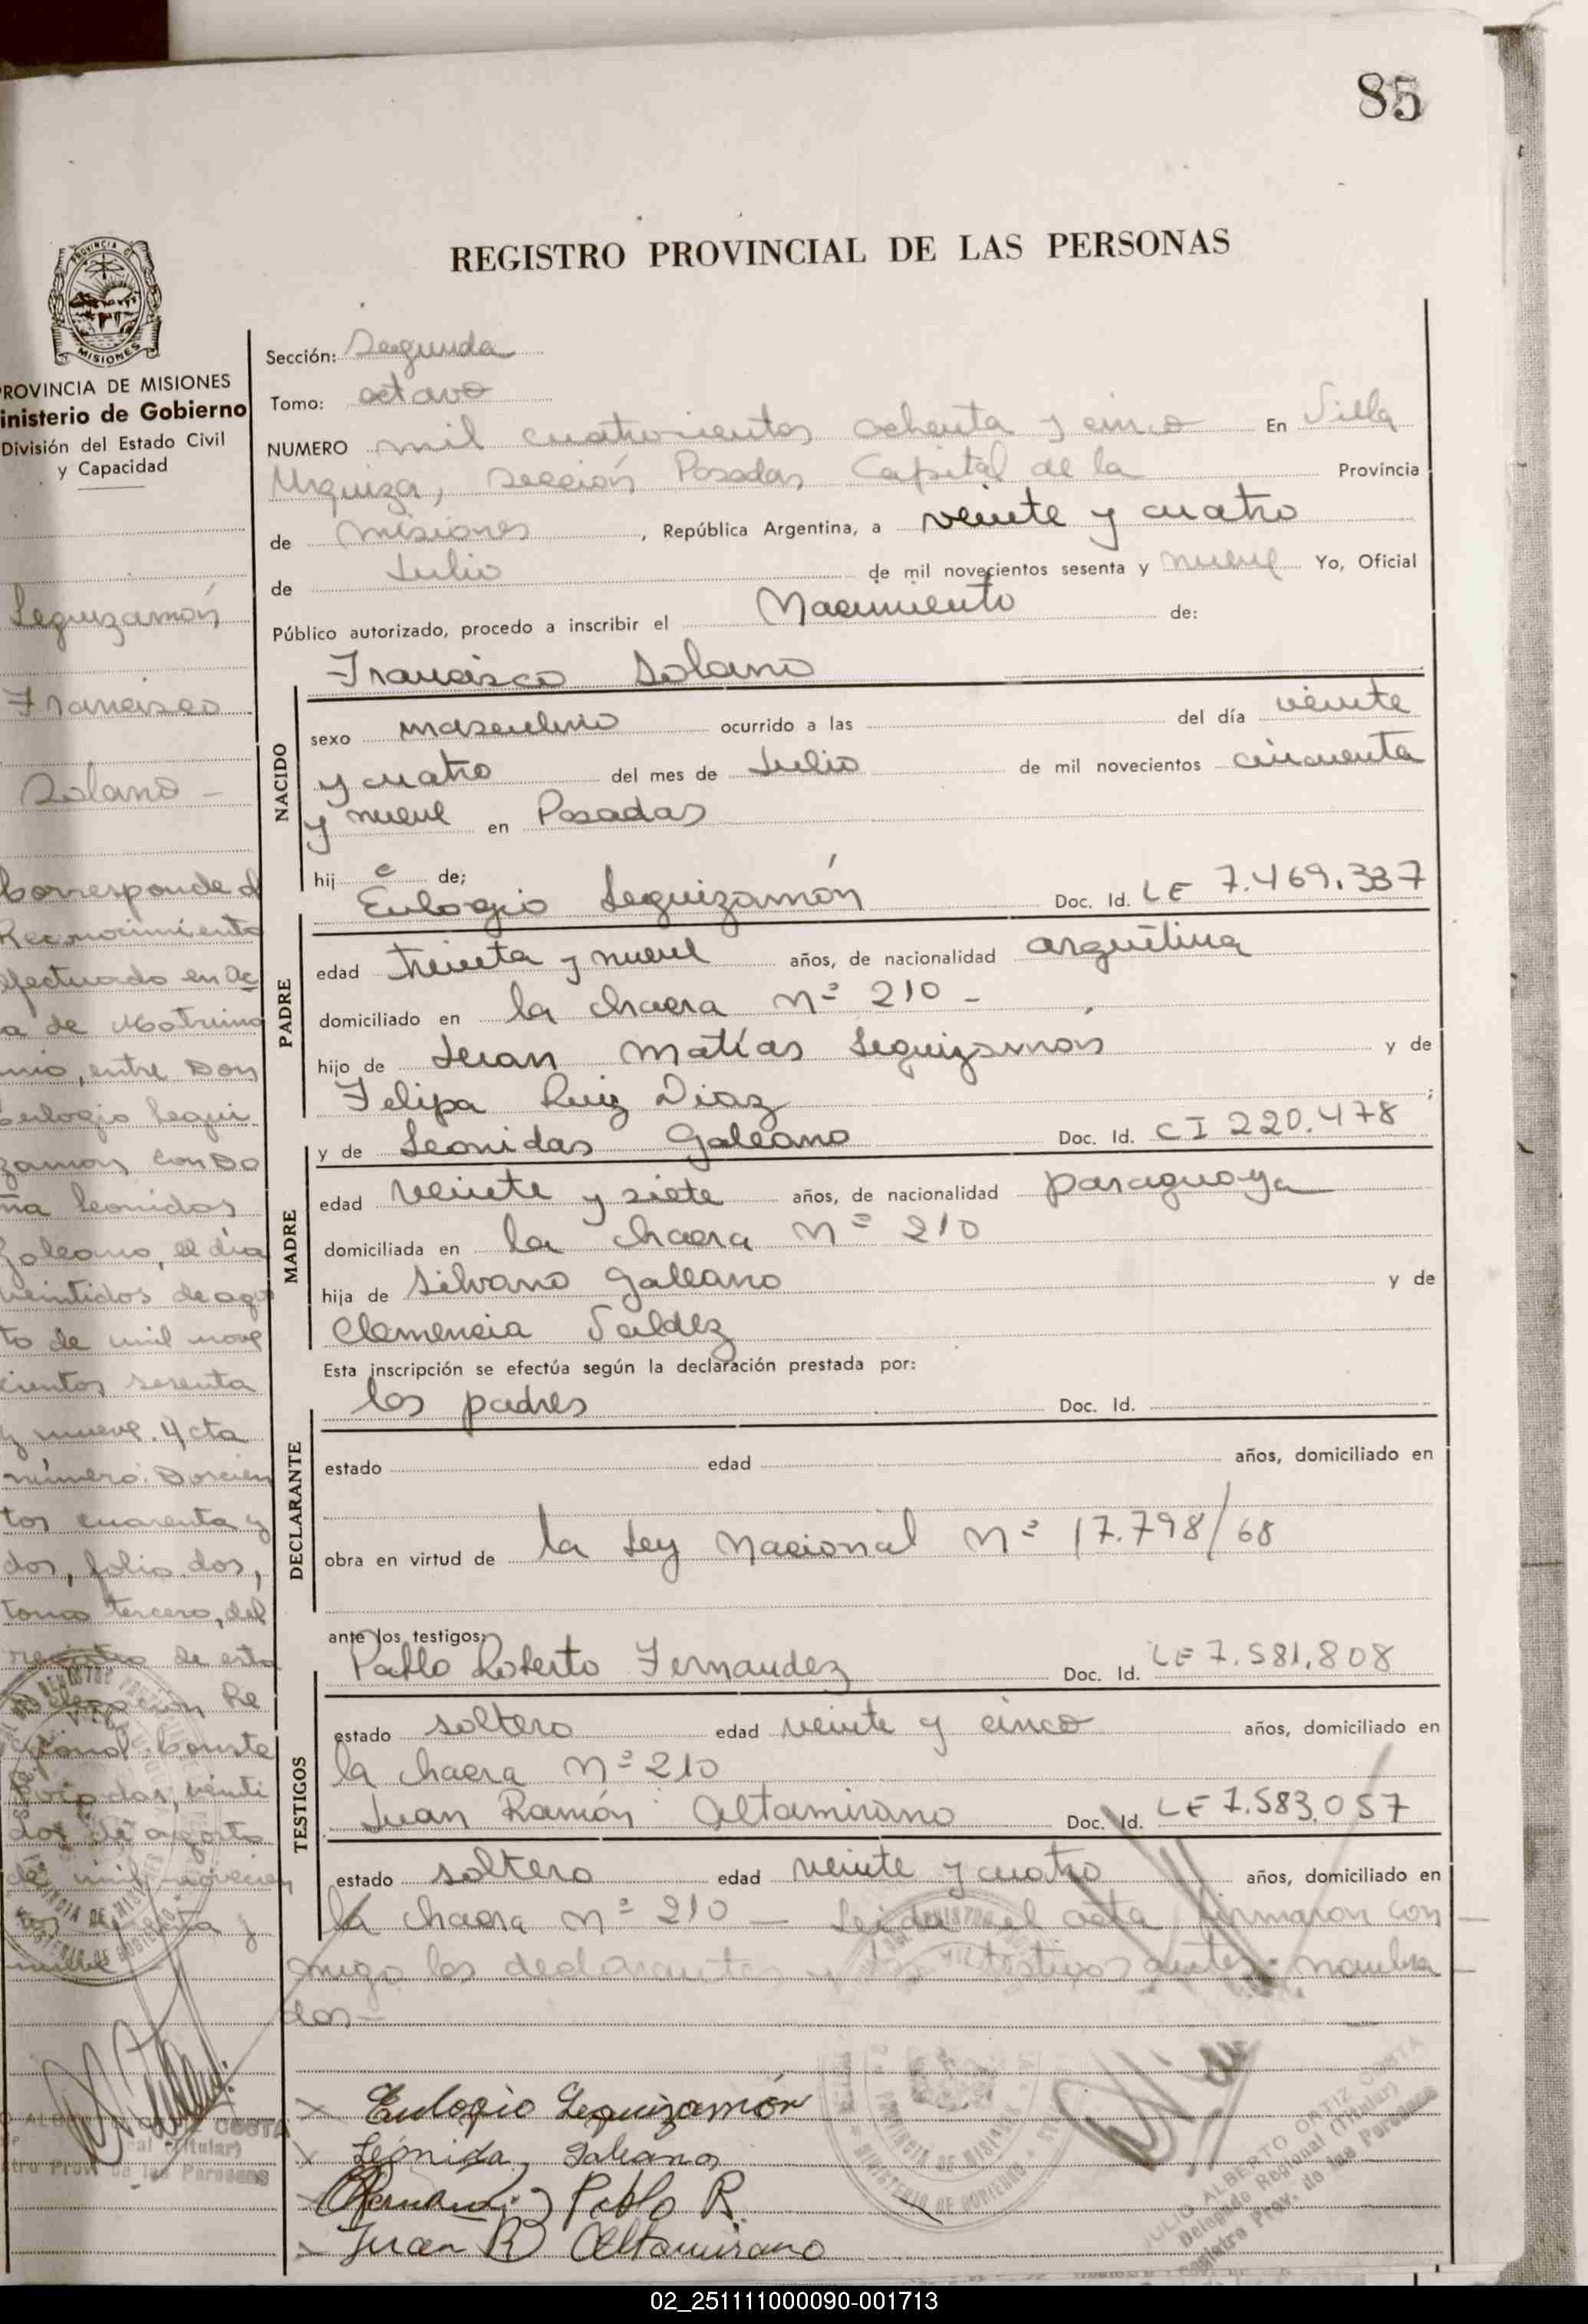 85
REGISTRO PROVINCIAL DE LAS PERSONAS
PROVINCIA DE
MISIONES
ROVINCIA DE MISIONES
inisterio de Gobierno
División del Estado Civil
y Capacidad
Leguizamón
Francisco
Solano -
Corresponde a
Reconocimiento
efectuado en ac
a de Matrimo
nio, entre Don
Eulogio Legui
zamon con Do
ña Leonidas
Galeano, el día
veintidos de ago
to de mil nove
cientos sesenta
y nueve. Acta
número: Doscien
tos cuarenta y
dos, folio dos,
tomo tercero, del
registro de esta
Delegación Re
gional. Conste
Posadas, veinti
dos de agosto
de mil novecien
tos sesenta y
nueve
Sección: Segunda
Tomo: octavo
NUMERO mil cuatrocientos ochenta y cinco En Villa
Urquiza, sección Posadas Capital de la Provincia
de Misiones, República Argentina, a veinte y cuatro
de Julio de mil novecientos sesenta y nueve Yo, Oficial
Público autorizado, procedo a inscribir el Nacimiento de:
Francisco Solano
NACIDO
sexo masculino ocurrido a las del día veinte
y cuatro del mes de Julio de mil novecientos cincuenta
y nueve en Posadas
hij o de;
Eulogio Leguizamón Doc. Id. LE 7.469.337
PADRE
edad treinta y nueve años, de nacionalidad argentina
domiciliado en la chacra Nº 210 -
hijo de Juan Matías Leguizamón y de
Felipa Ruiz Diaz ;
y de Leonidas Galeano Doc. Id. CI 220.478
MADRE
edad veinte y siete años, de nacionalidad paraguaya
domiciliada en la chacra Nº 210
hija de Silvano Galeano y de
Clemencia Valdez
Esta inscripción se efectúa según la declaración prestada por:
los padres Doc. Id.
DECLARANTE
estado edad años, domiciliado en
obra en virtud de la Ley Nacional Nº 17.798/68
ante los testigos:
Pablo Roberto Fernandez Doc. Id. LE 7.581.808
TESTIGOS
estado soltero edad veinte y cinco años, domiciliado en
la chacra Nº 210
Juan Ramón Altamirano Doc. Id. LE 7.583.057
estado soltero edad veinte y cuatro años, domiciliado en
la chacra Nº 210 — Leída el acta firmaron con
migo los declarantes y los testigos antes nombra
dos -
Eulogio Leguizamón
Leonida Galeano
Fernandez Pablo R.
Juan R Altamirano
PROVINCIA DE MISIONES
MINISTERIO DE GOBIERNO
JULIO ALBERTO ORTIZ COSTA
Delegado Regional (Titular)
Registro Prov. de las Personas
02_251111000090-001713